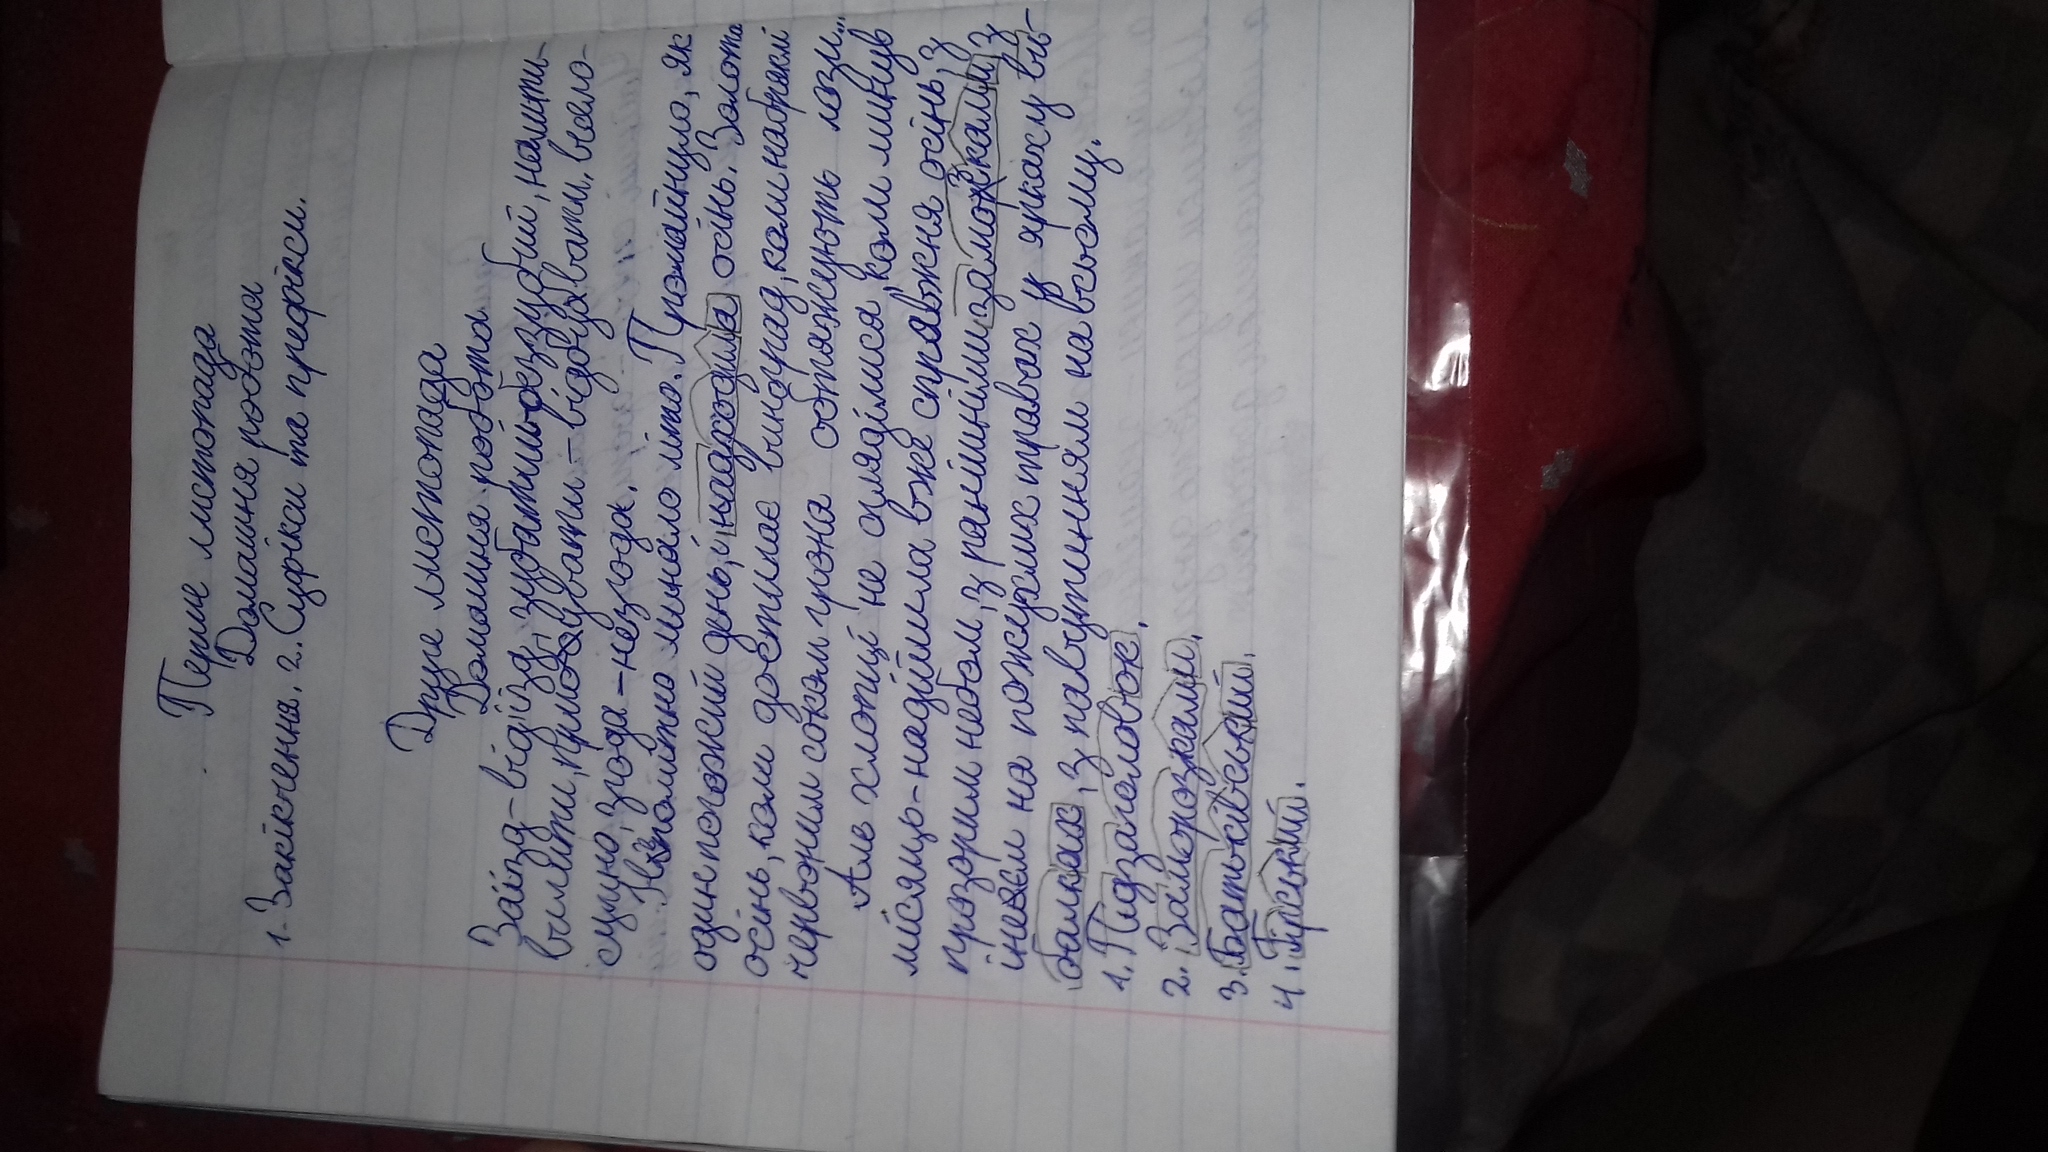 Перше листопада
Домашня робота
1. Закінчення. 2. Суфікси та префікси.
Друге листопада
Домашня робота
Заїзд – від'їзд, зубатий – беззубий, налити –
вилити, прибувати – відбувати, весело –
сумно, згода – незгода.
Непомітно минало літо. Промайнуло, як
один погожий день, і надходила осінь. Золота
осінь, коли достигає виноград, коли набряклі
червоним соком грона обтяжують лози...
Але хлопці не огляділися, коли минув
місяць – надійшла вже справжня осінь, з
прозорим небом, з ранішніми заморозками, з
інеєм на пожухлих травах у яркаху ви-
балках, з павутинням на всьому.
1. Підзаголовок.
2. Заморозками.
3. Батьківський.
4. Гірський.